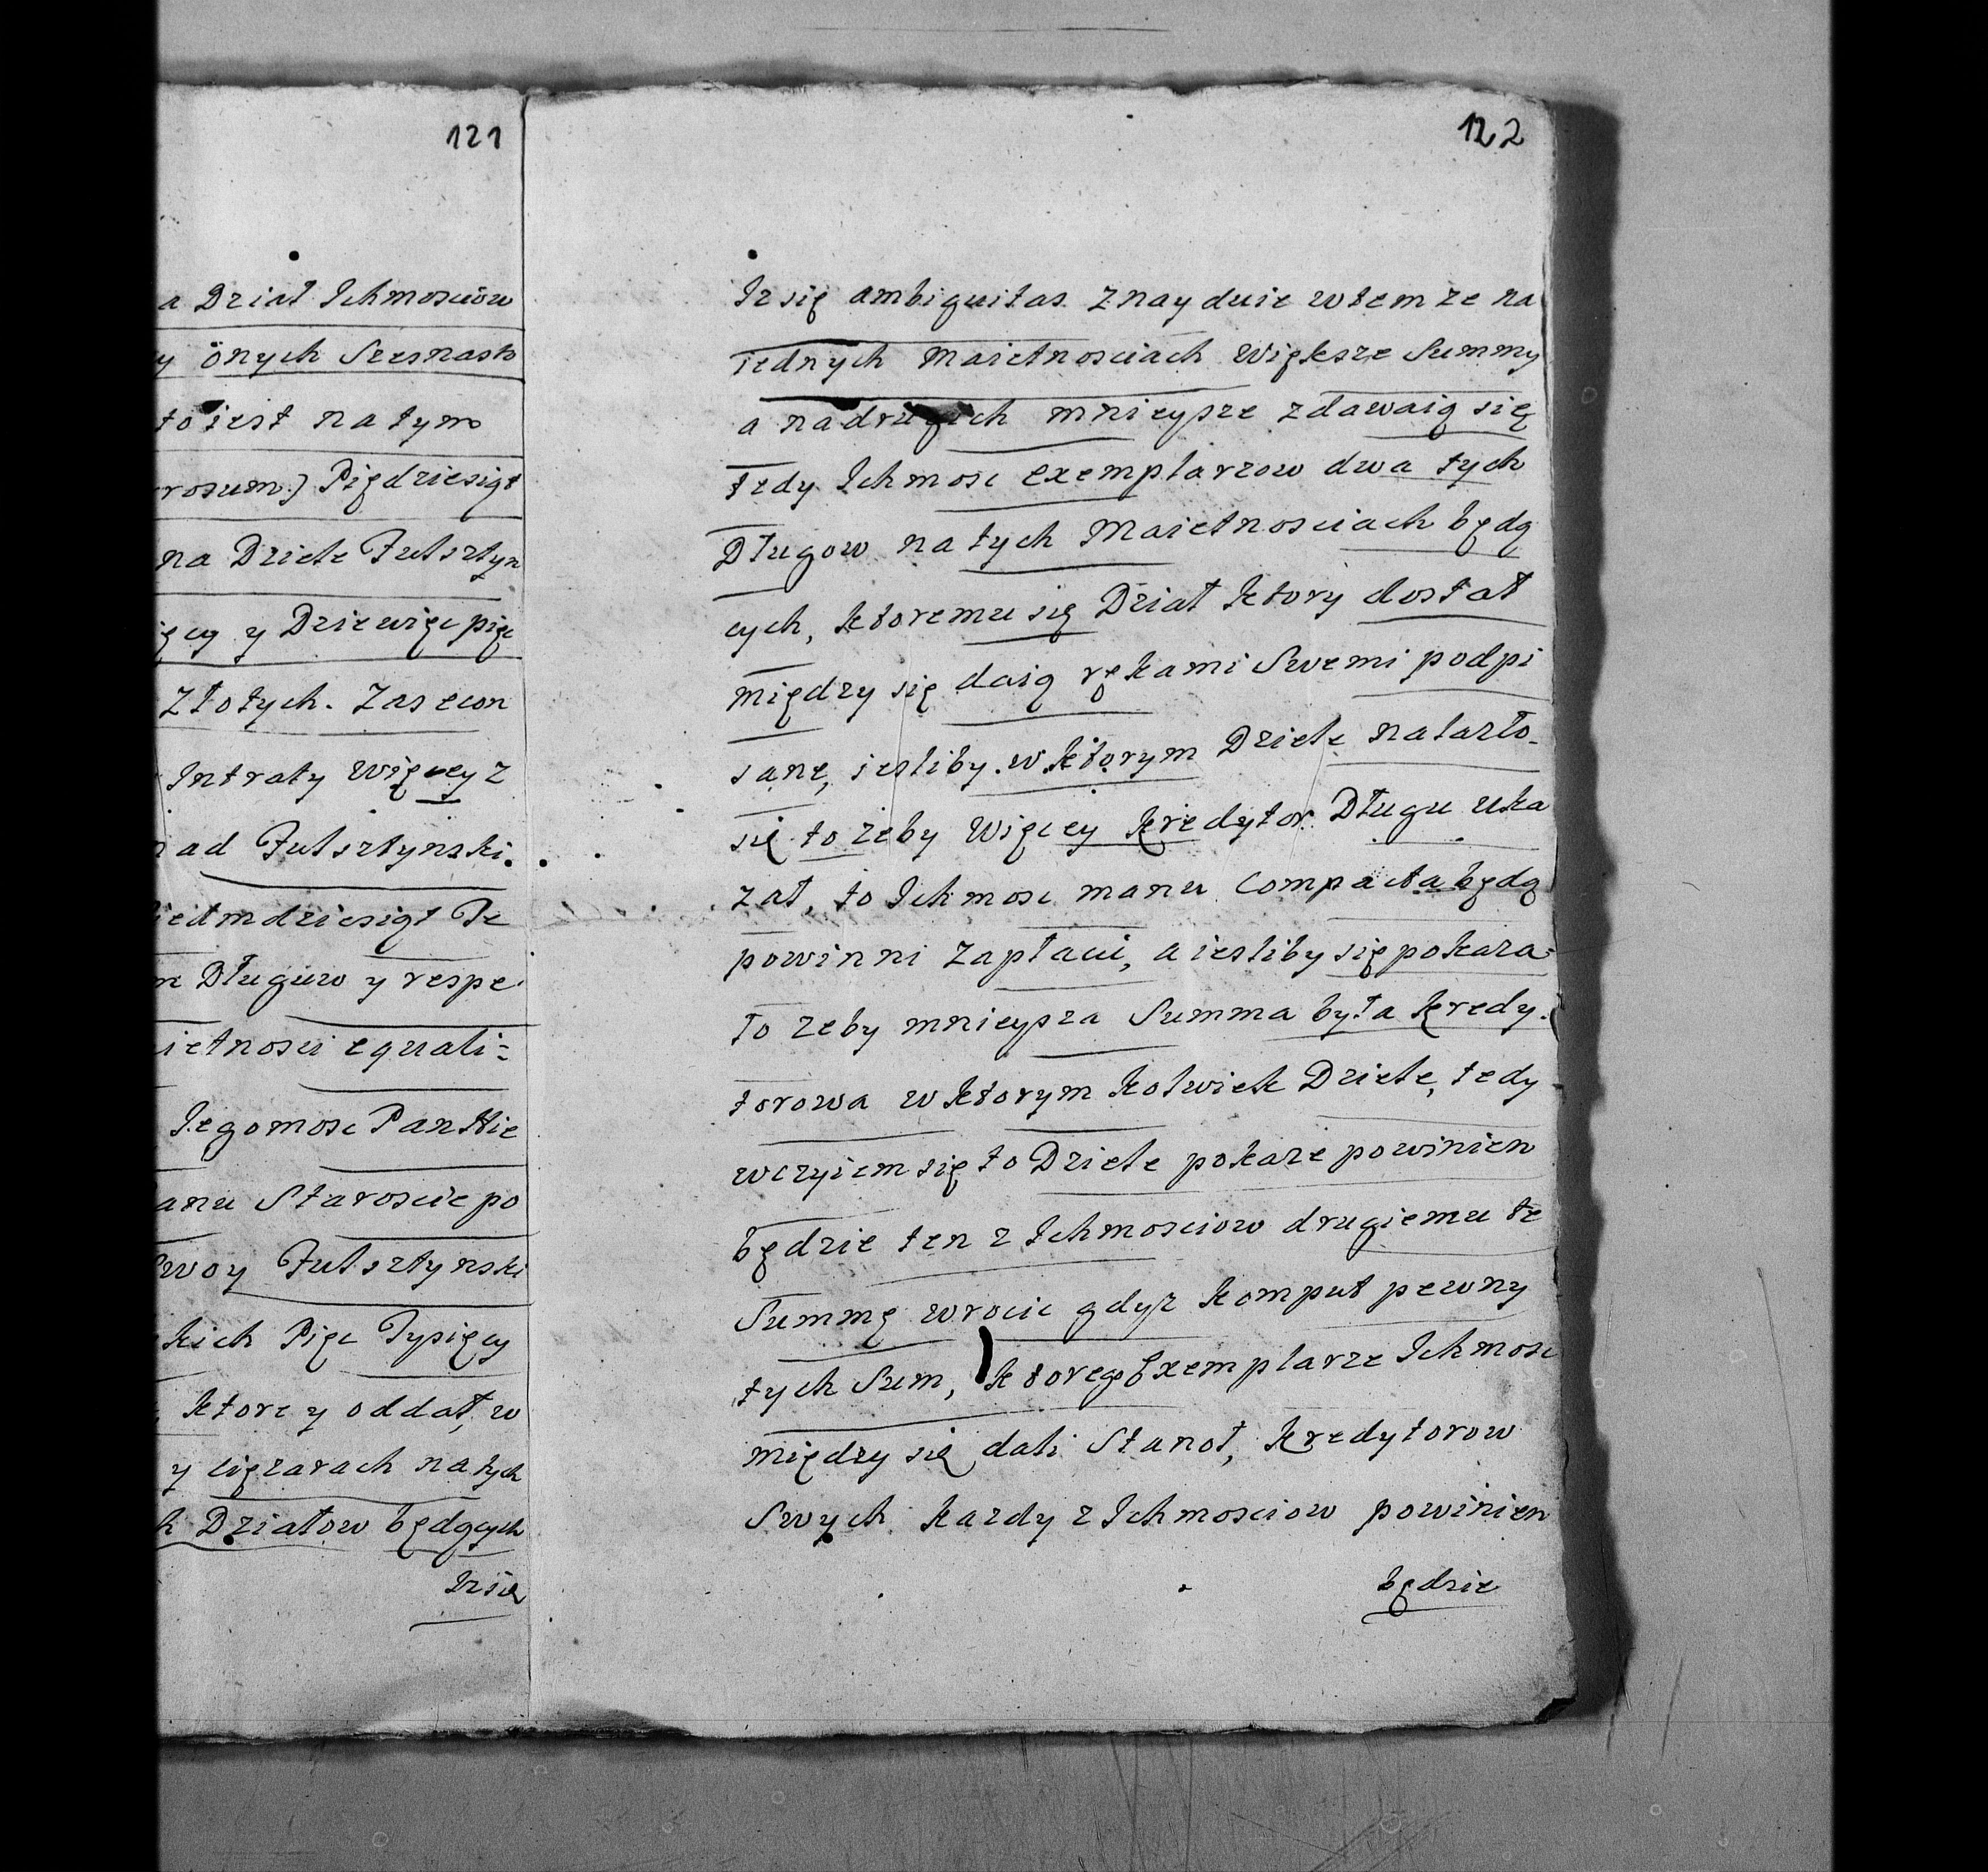 121
a Dział Ichmosciow
y onych Szesnasb
to iest na tym
rosum) Piędziesiąt
na Dziele Fulsztyn
ięcy y Dziewięc pię
Złotych. Zas econ
Intraty więcey z
ad Fulsztynski.
iedmdziesiąt Te
m Długuw y respe
ietnosci equali=
Iegomosc Pan Hie
anu Staroscie po
swoy Fulsztynski
kich Pięc Tysięcy
ktore y oddał, w
y ciężarach na tych
h Działow będących
Iz się
122
Iz się ambiguitas znayduie w tem ze na
iednych Maietnosciach Większe Summy
a na drugich mnieysze zdawaią się
tedy Ichmosc exemplarzow dwa tych
Długow na tych Maietnosciach będą
cych, ktoremu się Dział ktory dostał
między się daią rękami Swemi podpi
sane, iesliby w ktorym Dziele nalazło
się to zeby Więcey kredytor Długu uka
zał, to Ichmosc manu compacta będą
powinni Zapłacic, a iesliby się pokaza=
ło zeby mnieysza Summa była kredy.
torowa w ktorym kolwiek Dziele, tedy
w czyiem się to Dziele pokaze powinien
będzie ten z Ichmosciow drugiemu te
Summę wrocic gdyz komput pewny
tych Sum, ktorego Exemplarze Ichmosc
między się dali Stanoł, kredytorow
Swych kazdy z Ichmosciow powinien
będzie